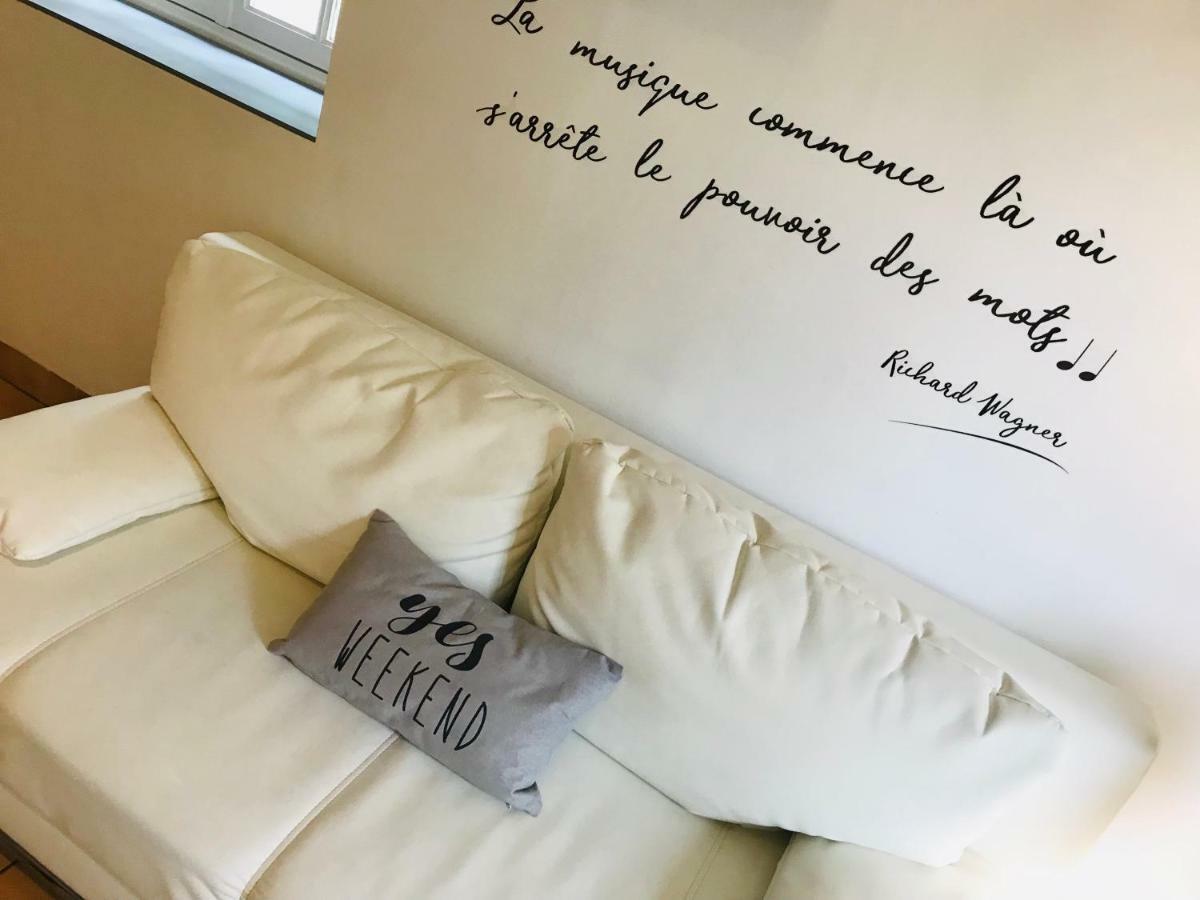 La musique commence là où
s'arrête le pouvoir des mots
Richard Wagner
yes
WEEKEND